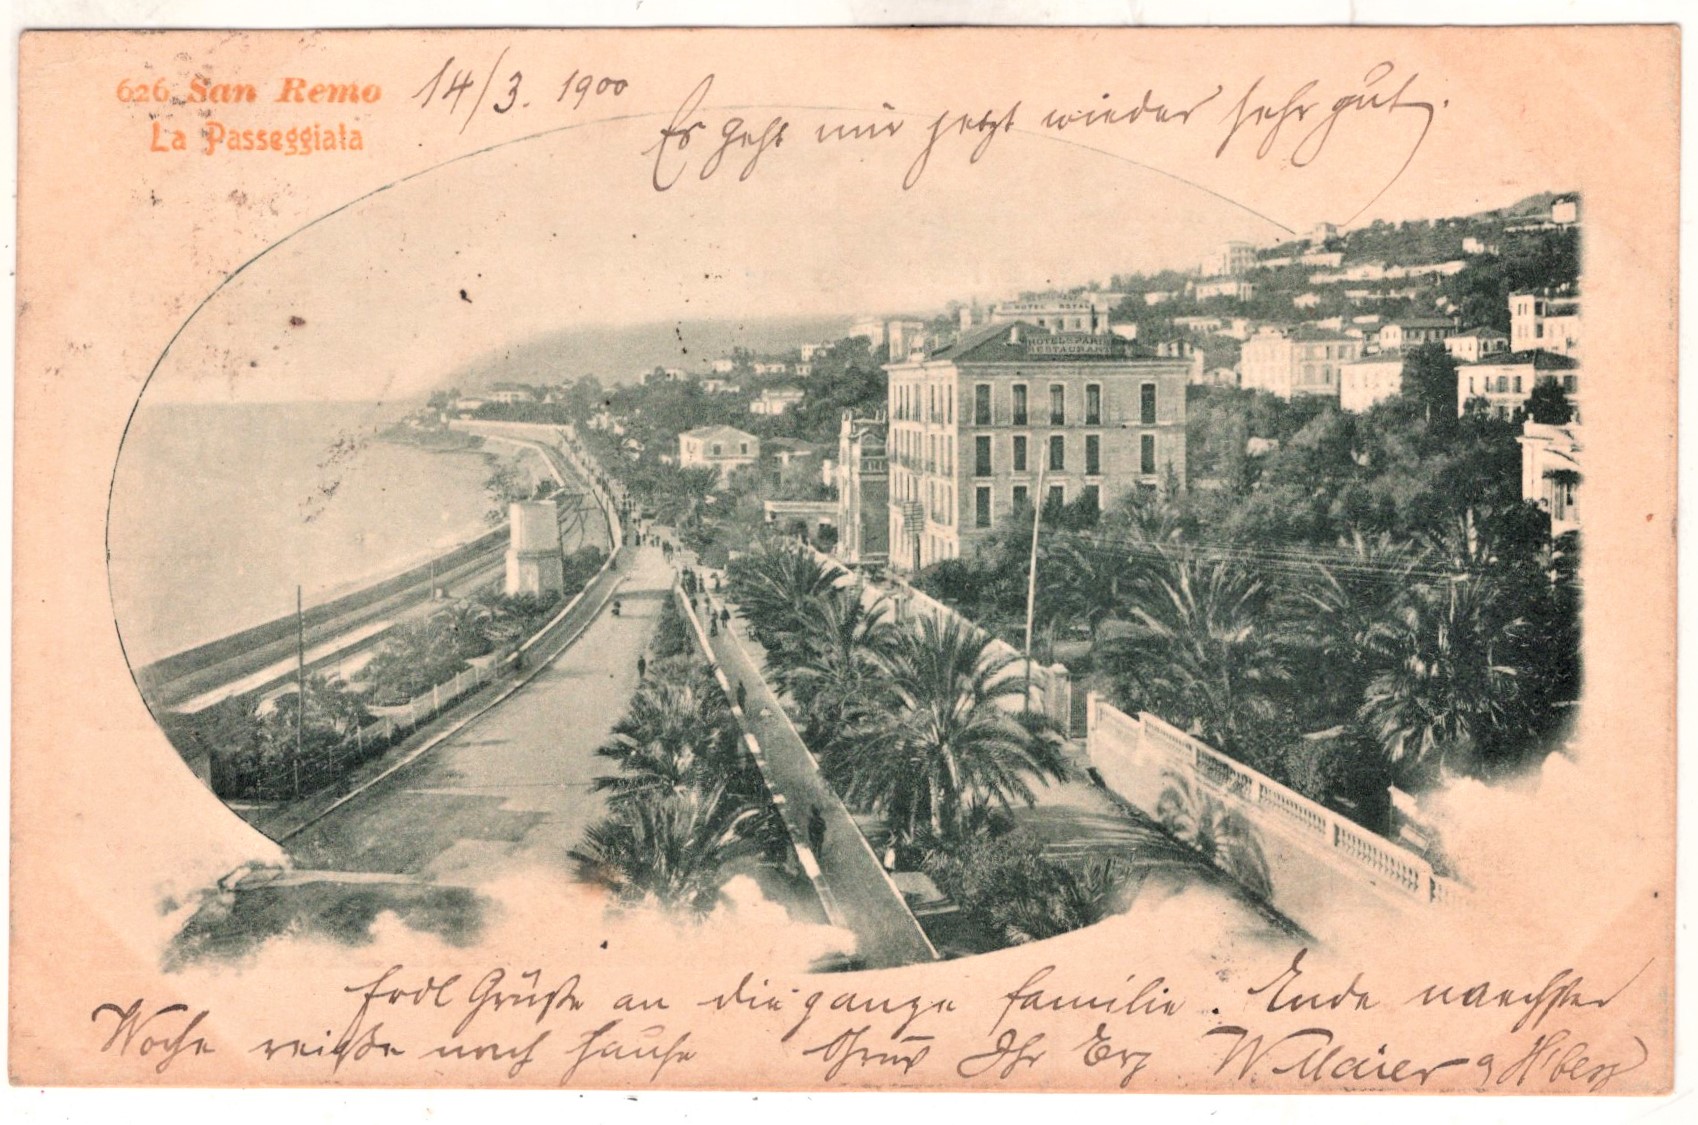 626 San Remo
La Passeggiata
14/3. 1900
Es geht mir jetzt wieder sehr gut.
HOTEL ROYAL
HOTEL DE PARIS
RESTAURANT
Frdl Grüße an die ganze Familie. Ende naechster
Woche reise nach Hause Ihr W. Maier